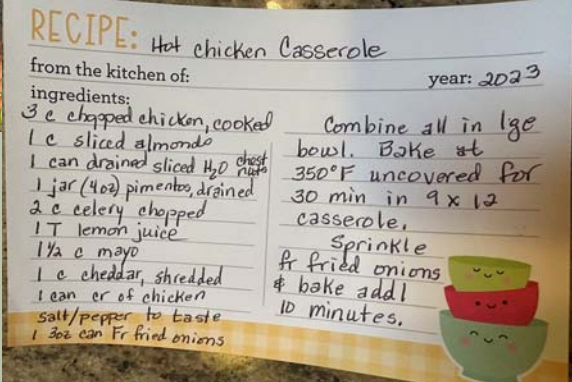 RECIPE: Hot chicken Casserole
from the kitchen of:
year: 2023
ingredients:
3 c chopped chicken, cooked
1 c sliced almonds
1 can drained sliced H2O chest nuts
1 jar (4oz) pimentos, drained
2 c celery chopped
1 T lemon juice
1 1/2 c mayo
1 c cheddar, shredded
1 can cr of chicken
salt/pepper to taste
1 3oz can Fr fried onions
Combine all in lge
bowl. Bake at
350°F uncovered for
30 min in 9 x 12
casserole.
Sprinkle
fr fried onions
& bake addl
10 minutes.